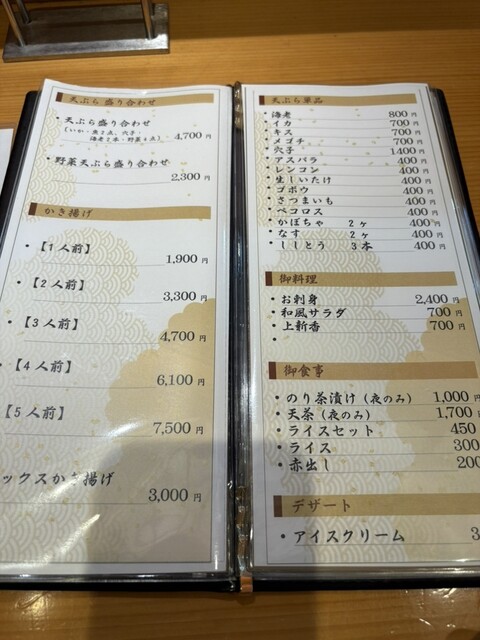 天ぷら盛り合わせ
・天ぷら盛り合わせ
(いか・魚2点、穴子・
海老2本・野菜4点) 4,700円
・野菜天ぷら盛り合わせ
2,300円
かき揚げ
・【1人前】
1,900円
・【2人前】
3,300円
・【3人前】
4,700円
・【4人前】
6,100円
【5人前】
7,500円
ックスかき揚げ
3,000円
天ぷら単品
・海老 800円
・イカ 700円
・キス 700円
・メゴチ 700円
・穴子 1400円
・アスパラ 400円
・レンコン 400円
・生しいたけ 400円
・ゴボウ 400円
・さつまいも 400円
・ペコロス 400円
・かぼちゃ 2ヶ 400円
・なす 2ヶ 400円
・ししとう 3本 400円
御料理
・お刺身 2,400円
・和風サラダ 700円
・上新香 700円
・
御食事
・のり茶漬け(夜のみ) 1,000円
・天茶(夜のみ) 1,700円
・ライスセット 450
・ライス 300
・赤出し 200
デザート
・アイスクリーム 3